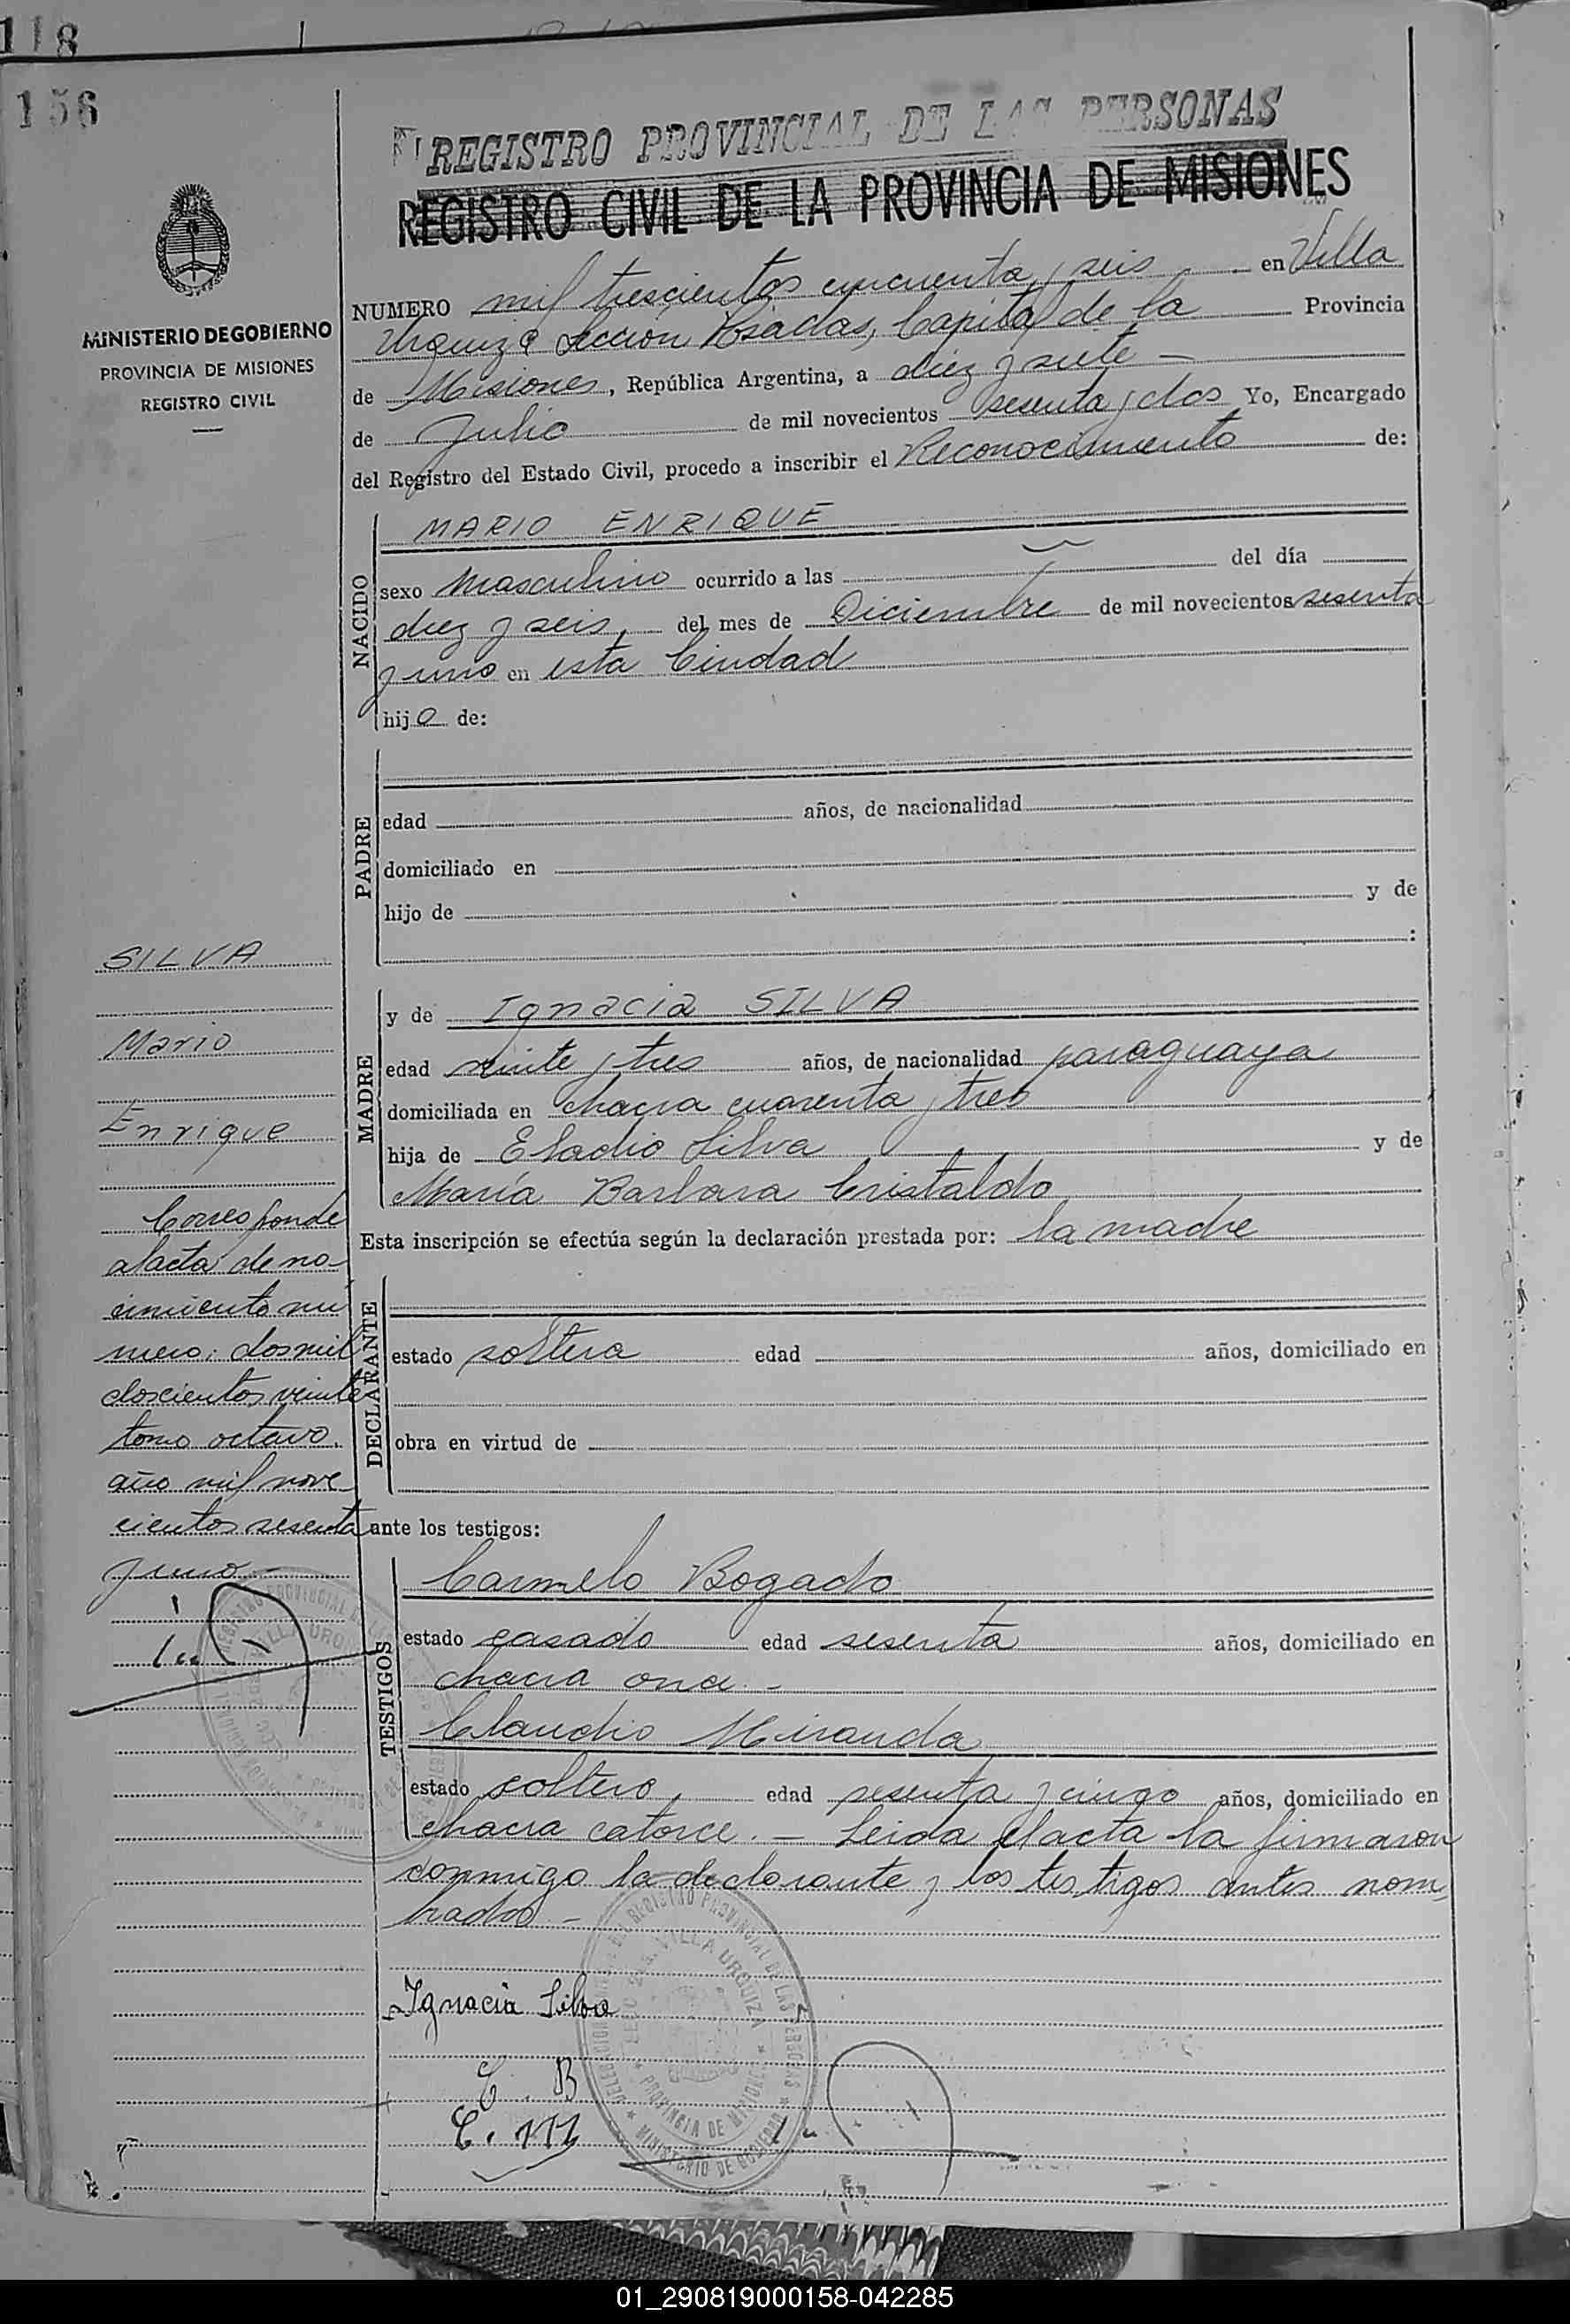 118
156
REGISTRO PROVINCIAL DE LAS PERSONAS
REGISTRO CIVIL DE LA PROVINCIA DE MISIONES
MINISTERIO DE GOBIERNO
PROVINCIA DE MISIONES
REGISTRO CIVIL
NUMERO mil trescientos cincuenta y seis en Villa
Urquiza Sección Posadas, Capital de la Provincia
de Misiones, República Argentina, a diez y siete -
de Julio de mil novecientos sesenta y dos Yo, Encargado
del Registro del Estado Civil, procedo a inscribir el Reconocimiento de:
NACIDO
MARIO ENRIQUE
sexo Masculino ocurrido a las del día
diez y seis, del mes de Diciembre de mil novecientos sesenta
y uno en esta Ciudad
hijo de:
PADRE
edad años, de nacionalidad
domiciliado en
hijo de y de
:
SILVA
Mario
Enrique
MADRE
y de Ignacia SILVA
edad veinte y tres años, de nacionalidad paraguaya
domiciliada en chacra cuarenta y tres
hija de Eladio Silva y de
María Barbara Cristaldo
Esta inscripción se efectúa según la declaración prestada por: la madre
Corresponde
al acta de na-
cimiento nu
mero: dos mil
doscientos veinte
tomo octavo.
año mil nove
cientos sesenta
y uno -
DECLARANTE
estado soltera edad años, domiciliado en
obra en virtud de
ante los testigos:
TESTIGOS
Carmelo Bogado
estado casado edad sesenta años, domiciliado en
chacra once. -
Claudio Miranda
estado soltero, edad sesenta y cinco años, domiciliado en
chacra catorce. - Leida el acta la firmaron
conmigo la declarante y los testigos antes nom
brados -
Ignacia Silva
C. B
C. M
VILLA URQUIZA
REGISTRO PROVINCIAL DE LAS PERSONAS
PROVINCIA DE MISIONES
MINISTERIO DE GOBIERNO
01_290819000158-042285